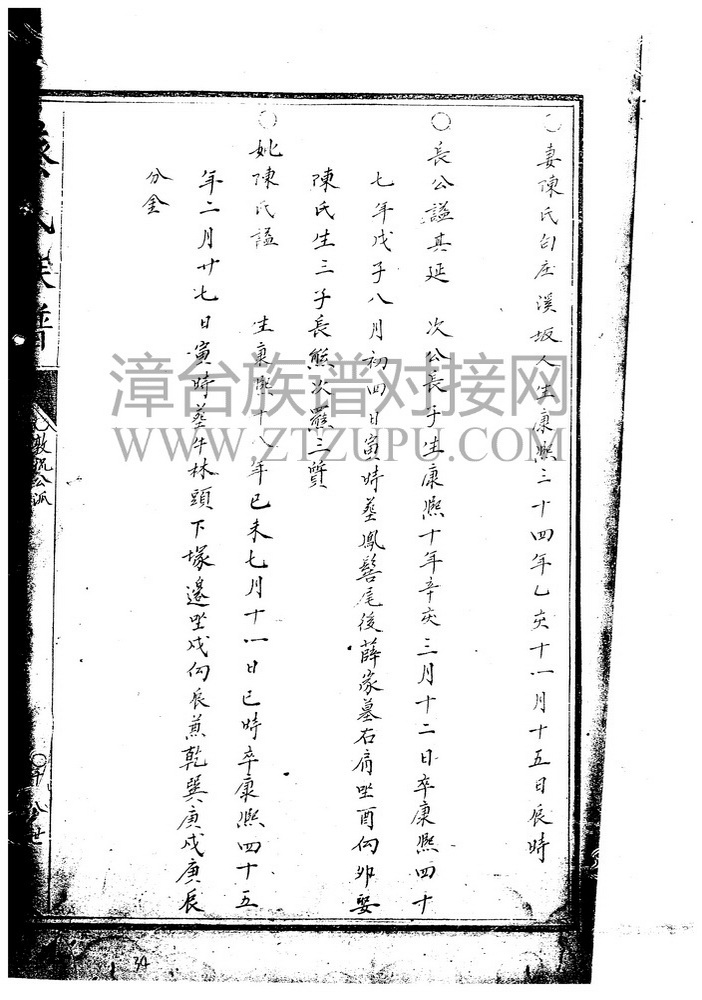 ○妻陳氏白庄溪坂人生康熙三十四年乙亥十一月十五日辰時
○長公謚其延 次公長子生康熙十年辛亥三月十二日卒康熙四十
七年戊子八月初四日寅時塟鳳髻尾後薛家墓右肩坐酉向卯娶
陳氏生三子長熊次羆三質
○妣陳氏謚 生康熙十八年己未七月十一日巳時卒康熙四十五
年二月廿七日寅時塟牛林頭下塚邊坐戍向辰兼乾巽庚戍庚辰
分金
氏族譜
公派
世
34
漳台族谱对接网
WWW.ZTZUPU.COM